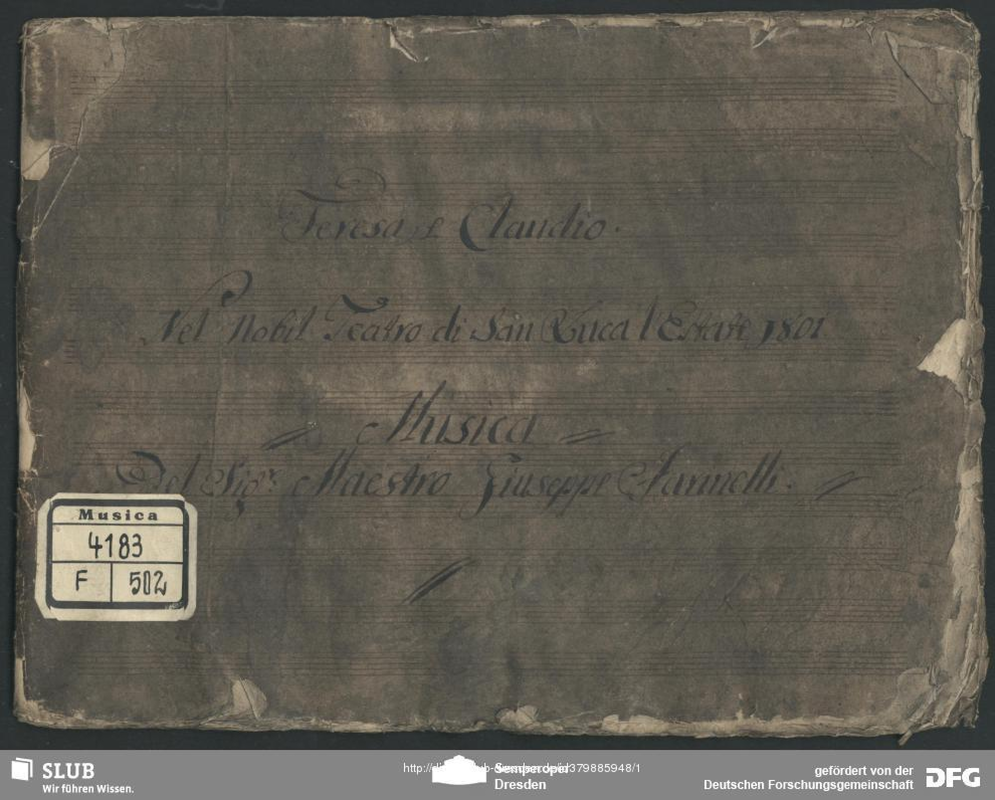 Teresa e Claudio.
Nel Nobil Teatro di San Luca l'Estate 1801
Musica
Del Sigr. Maestro Giuseppe Farinelli.
Musica
4183
F 502
SLUB
Wir führen Wissen.
Semperoper
Dresden
gefördert von der
Deutschen Forschungsgemeinschaft
DFG